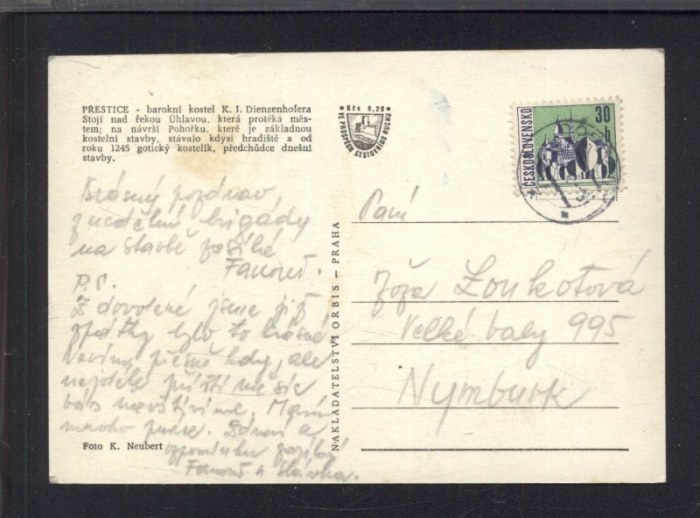 PŘEŠTICE - barokní kostel K. I. Dienzenhofera
Stojí nad řekou Úhlavou, která protéká měs-
tem; na návrší Pohořku, které je základnou
kostelní stavby, stávalo kdysi hradiště a od
roku 1245 gotický kostelík, předchůdce dnešní
stavby.
Kčs 0,20
VE PROSPĚCH CESTOVNÍHO RUCHU
30
h
ČESKOSLOVENSKO
Krásný pozdrav
z nedělní brigády
na stavbě zasílá
Fanouš.
P.S.
Z dovolené jsme již
zpátky bylo to krásné
přesně kdy, ale
nejdéle příští měsíc
vás navštívíme.
mnoho práce. a
vzpomínku zasílá
Fanouš a Slávka.
Foto K. Neubert
NAKLADATELSTVÍ ORBIS - PRAHA
Paní
Zoukotová
Velké valy 995
Nymburk